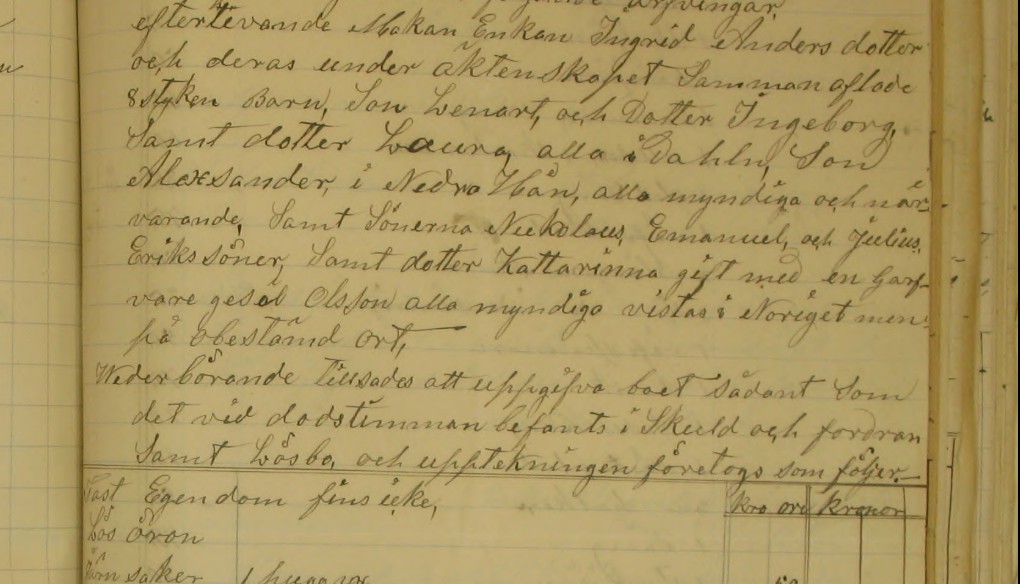 arfvingar
efterlevande Makan Enkan Ingrid Anders dotter
och deras under äktenskapet Sammanaflade
8 styken Barn, Son Lenart, och Dotter Ingeborg,
Samt dotter Laura, alla i Dahln, Son
Alexsander, i Nedra Hån, alla myndiga och när-
varande, Samt Sönerna Nickolaus, Emanuel, och Julius,
Eriks söner, Samt dotter Kattarinna gift med en Garf-
vare gesäl Olsson alla myndiga vistas i Noriget men
på obestämd ort,
Wederbörande tillsades att uppgifva boet sådant Som
det vid dödstimman befants i Skuld och fordran
Samt Lösbo, och upptekningen företogs som följer.
Fast Egendom fins icke,
kro öre kronor
Lös öron
Järn saker 1 huggyx
50